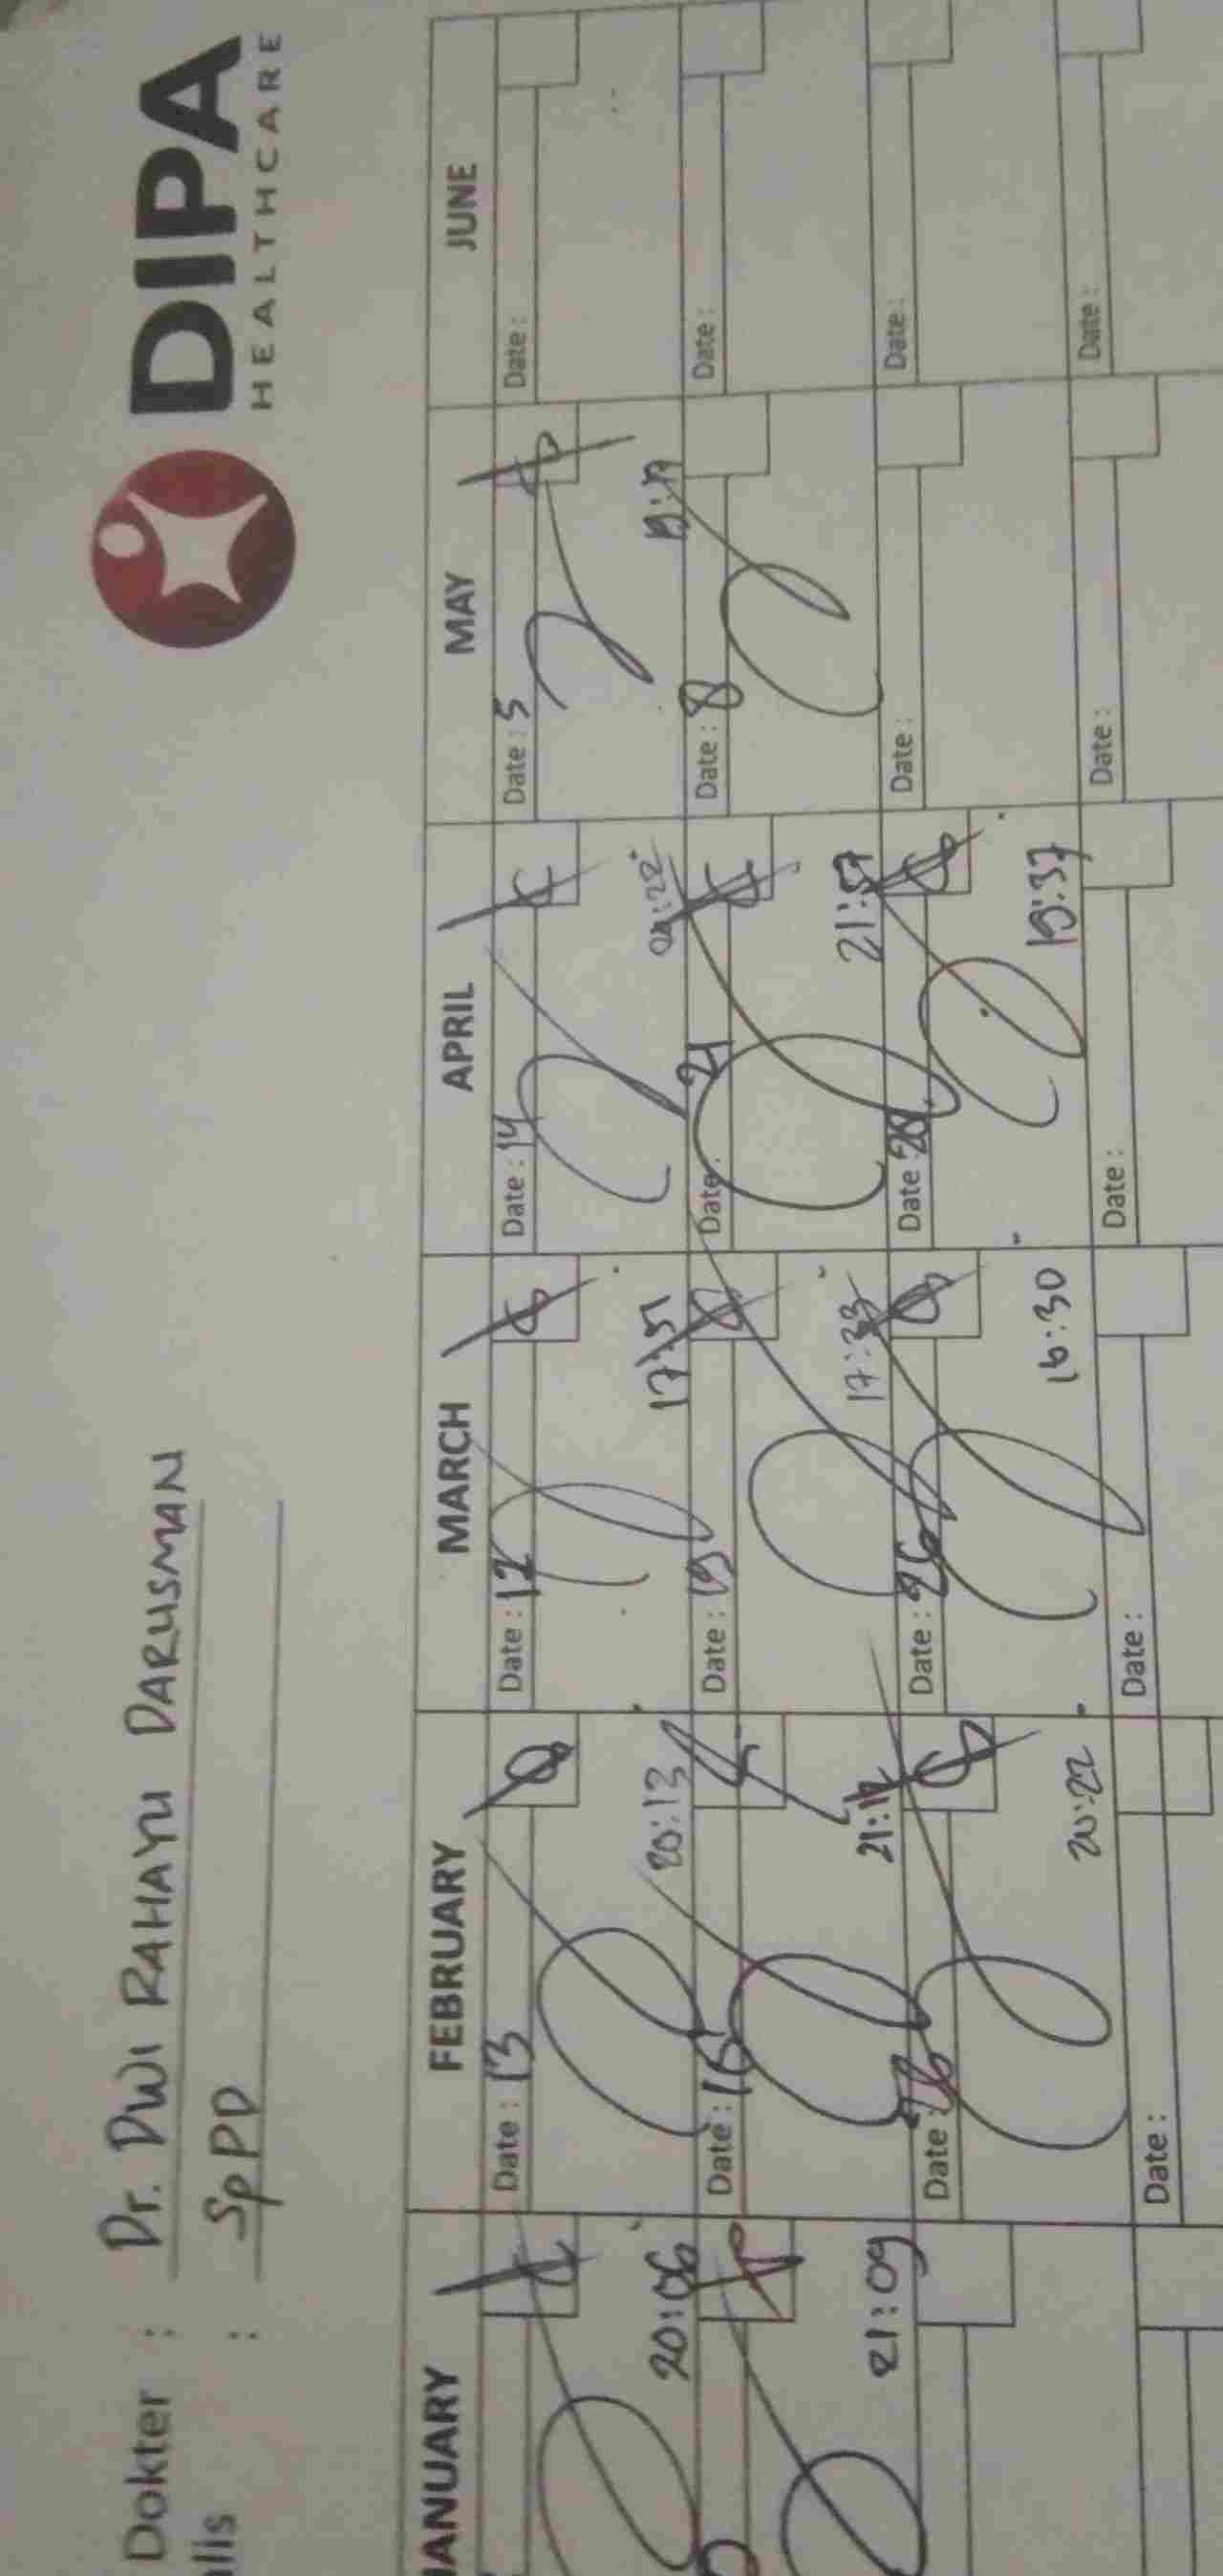 DIPA
HEALTHCARE
Dokter : Dr. DWI RAHAYU DARUSMAN
alis : SpPD
JANUARY FEBRUARY MARCH APRIL MAY JUNE
Date : 13 Date : 12 Date : 14 Date : 5 Date :
20:06 20:13 17:51
Date : 16 Date : 19 Date : 21 Date : 8 Date :
21:09 17:33 21:57
Date : 26 Date : 26 Date : 28 Date : Date :
20:22 16:30 19:37
Date : Date : Date : Date : Date :